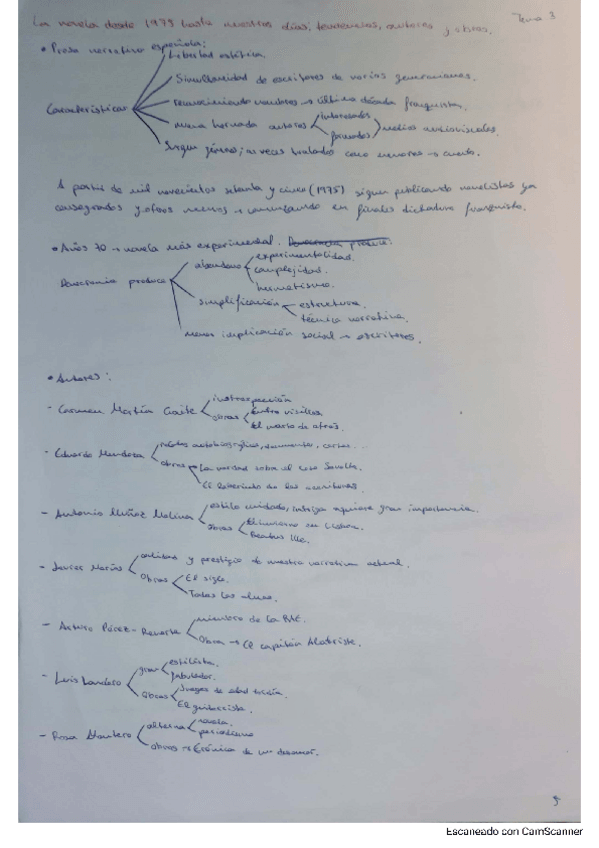 La novela desde 1975 hasta nuestros días, tendencias, autores y obras.
Tema 3
• Prosa narrativa española:
Características
Libertad estética.
Simultaneidad de escritores de varias generaciones.
reconocimiento narradores → última década franquista.
nueva hornada autores
interesados
formados
medios audiovisuales.
Surgen géneros; a veces tratados como menores → cuento.
A partir de mil novecientos setenta y cinco (1975) siguen publicando novelistas ya
consagrados y otros nuevos → comenzando en finales dictadura franquista.
• Años 70 → novela más experimental.
Democracia produce
abandono
experimentalidad.
complejidad.
hermetismo.
simplificación
estructura.
técnica narrativa.
menor implicación social → escritores.
• Autores:
- Carmen Martín Gaite
introspección
obras
Entre visillos
El cuarto de atrás.
- Eduardo Mendoza
relatos autobiográficos, documentos, cartas...
obras
La verdad sobre el caso Savolta.
El laberinto de las aceitunas.
- Antonio Muñoz Molina
estilo cuidado, intriga adquiere gran importancia.
obras
El invierno en Lisboa.
Beatus Ille.
- Javier Marías
calidad y prestigio de nuestra narrativa actual.
Obras
El siglo.
Todas las almas.
- Arturo Pérez-Reverte
miembro de la RAE.
Obra → El capitán Alatriste.
- Luis Landero
gran
estilista.
fabulador.
obras
Juegos de edad tardía.
El guitarrista.
- Rosa Montero
alterna
novela.
periodismo
obras → Crónica de un desamor.
Escaneado con CamScanner